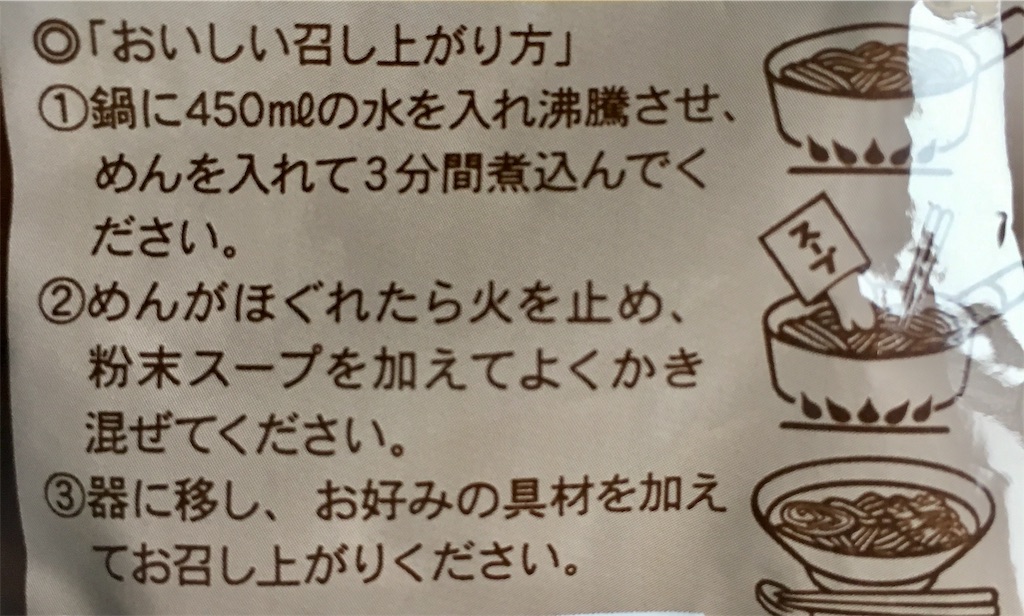 ◎「おいしい召し上がり方」
①鍋に450mlの水を入れ沸騰させ、
めんを入れて3分間煮込んでく
ださい。
②めんがほぐれたら火を止め、
粉末スープを加えてよくかき
混ぜてください。
③器に移し、お好みの具材を加え
てお召し上がりください。
スープ